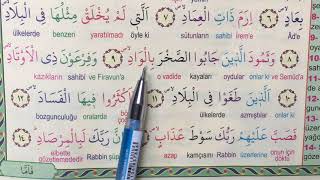 بِعَادٍ ﴿٦﴾ اِرَمَ ذَاتِ الْعِمَادِ ﴿٧﴾ اَلَّتٖي لَمْ يُخْلَقْ مِثْلُهَا فِي الْبِلَادِ
ülkelerde benzeri yaratılmadı öyle ki sütunların sahibi irem'e
وَثَمُودَ الَّذٖينَ جَابُوا الصَّخْرَ بِالْوَادِ ﴿٩﴾ وَفِرْعَوْنَ ذِي الْاَوْتَادِ
kazıkların sahibi ve Firavun'a o vadide kayaları oydular onlar ki ve Semûd'a
﴿١٠﴾ اَلَّذٖينَ طَغَوْا فِي الْبِلَادِ ﴿١١﴾ فَاَكْثَرُوا فٖيهَا الْفَسَادَ ﴿١٢﴾
bozgunculuğu oralarda ülkelerde azmışlar onlar ki
فَصَبَّ عَلَيْهِمْ رَبُّكَ سَوْطَ عَذَابٍ اِنَّ رَبَّكَ لَبِالْمِرْصَادِ ﴿١٤﴾
elbette gözetlemededir Rabbin azap kamçısını Rabbin üzerlerine onun için döktü
فَاَمَّا